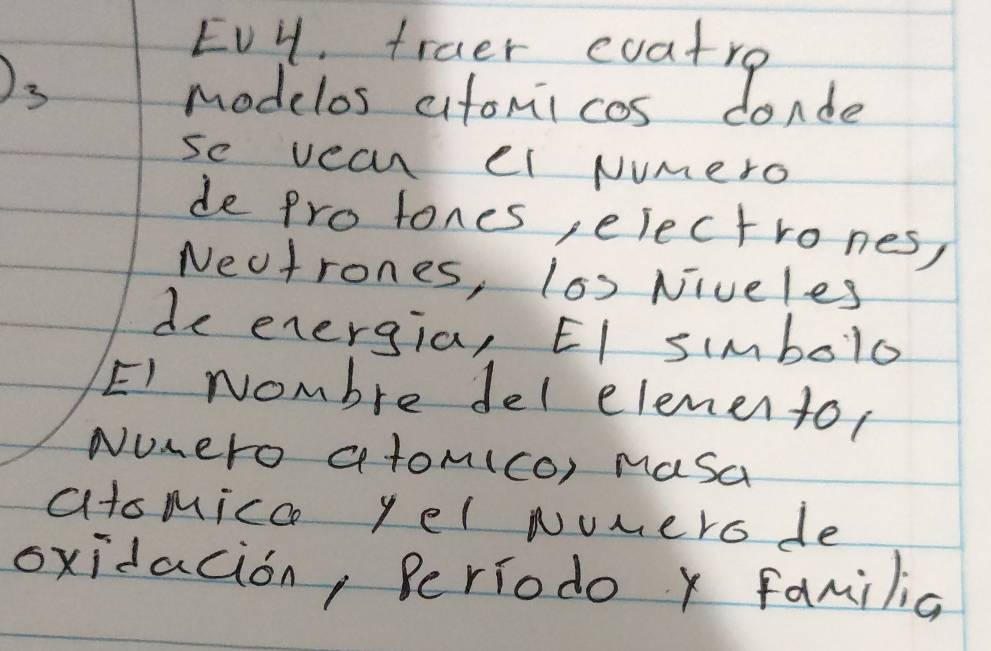 EV4. traer cuatro
)3 Modelos atomicos donde
se vean el Numero
de Protones, electrones,
Neutrones, los Niveles
de energia, El simbolo
El Nombre del elemento,
Numero atomico, Masa
atomica y el Numero de
oxidación, Período y Familia